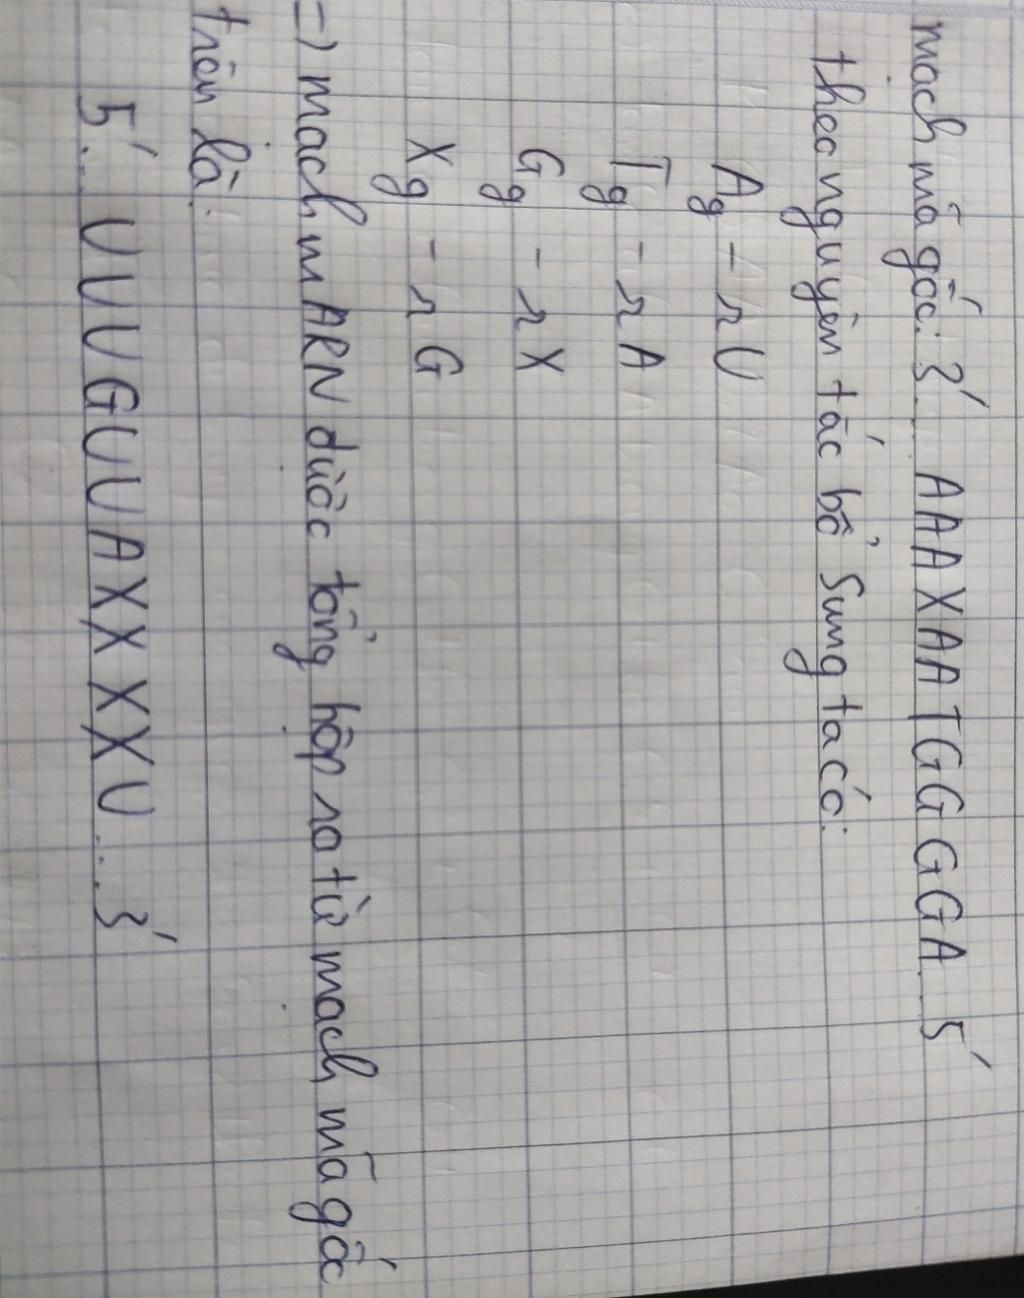 mạch mã gốc: 3' AAAXAATGGGGA 5'
theo nguyên tắc bổ sung ta có:
Ag - rU
Tg - rA
Gg - rX
Xg - rG
=) mạch mARN được tổng hợp ra từ mạch mã gốc
trên là:
5'... UUUGUUAXXXXU...3'